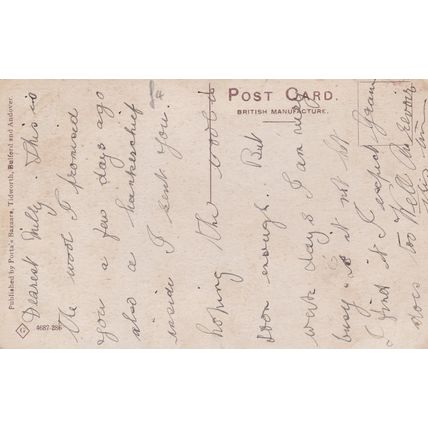 POST CARD.
BRITISH MANUFACTURE.
Published by Porta's Bazaars, Tidworth, Bulford and Andover.
4687-286
Dearest Milly. This is
the wool I promised
you a few days ago
also a hankerchief
inside I sent you.
hoping the wool is
soon enough. But
days I am very
busy is it not
I find it I expect
does too Well